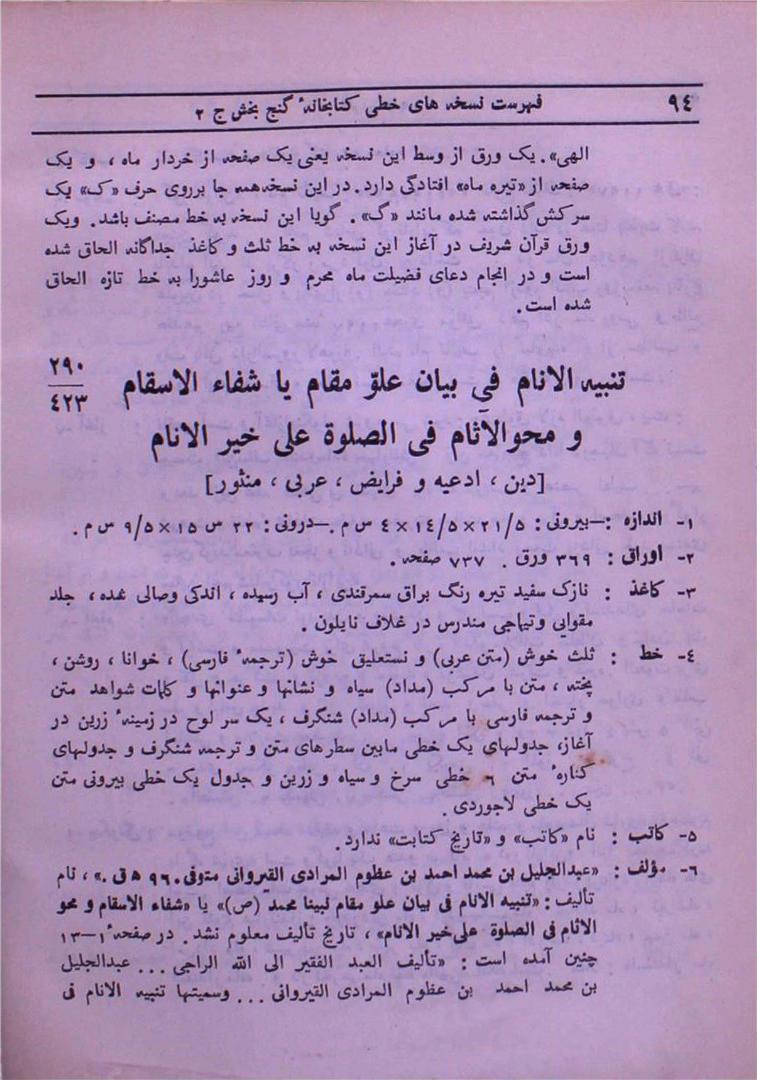 ۹٤ فهرست نسخه های خطی کتابخانهٔ گنج بخش ج ۲
الهی». یک ورق از وسط این نسخه یعنی یک صفحه از خردار ماه ، و یک
صفحه از «تیره ماه» افتادگی دارد. در این نسخه همه جا برروی حرف «ک» یک
سرکش گذاشته شده مانند «گ». گویا این نسخه به خط مصنف باشد. ویک
ورق قرآن شریف در آغاز این نسخه به خط ثلث و کاغذ جداگانه الحاق شده
است و در انجام دعای فضیلت ماه محرم و روز عاشورا به خط تازه الحاق
شده است.
۲۹۰
٤۲۳
تنبیه الانام فی بیان علوّ مقام یا شفاء الاسقام
و محوالآثام فی الصلوة علی خیر الانام
[دین ، ادعیه و فرایض ، عربی ، منثور]
۱- اندازه :—بیرونی: ۲۱/۵ × ۱٤/۵ × ٤ س م.—درونی: ۲۲ س ۱۵ × ۹/۵ س م .
۲- اوراق : ۳٦۹ ورق . ۷۳۷ صفحه .
۳- کاغذ : نازک سفید تیره رنگ براق سمرقندی ، آب رسیده ، اندکی وصالی شده ، جلد
مقوایی وتیماجی مندرس در غلاف نایلون .
٤- خط : ثلث خوش (متن عربی) و نستعلیق خوش (ترجمهٔ فارسی) ، خوانا ، روشن ،
پخته ، متن با مرکب (مداد) سیاه و نشانها و عنوانها و کلمات شواهد متن
و ترجمه فارسی با مرکب (مداد) شنگرف ، یک سر لوح در زمینهٔ زرین در
آغاز، جدولهای یک خطی مابین سطرهای متن و ترجمه شنگرف و جدولهای
کنارهٔ متن ٦ خطی سرخ و سیاه و زرین و جدول یک خطی بیرونی متن
یک خطی لاجوردی .
۵- کاتب : نام «کاتب» و «تاریخ کتابت» ندارد.
٦- مؤلف : «عبدالجلیل بن محمد احمد بن عظوم المرادی القیروانی متوفی ۹٦۰ ه ق.» ، نام
تألیف : «تنبیه الانام فی بیان علو مقام نبینا محمد (ص)» یا «شفاء الاسقام و محو
الاثام فی الصلوة علی خیر الانام» ، تاریخ تألیف معلوم نشد. در صفحهٔ ۱—۱۳
چنین آمده است : «تألیف العبد الفقیر الی الله الراجی ... عبدالجلیل
بن محمد احمد بن عظوم المرادی القیروانی ... وسمیتها تنبیه الانام فی